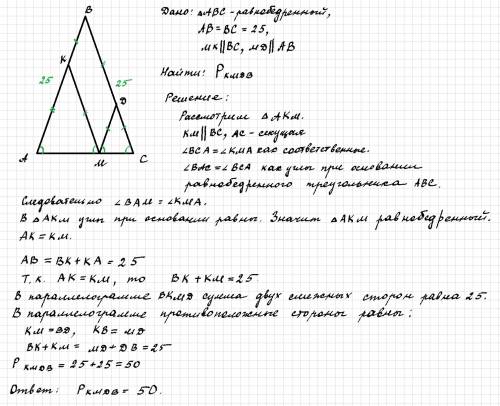 B
Дано: △ABC - равнобедренный,
AB = BC = 25,
MK ∥ BC, MD ∥ AB
K
25
25
D
Найти: P KMDB
Решение:
Рассмотрим △AKM.
KM ∥ BC, AC - секущая
∠BCA = ∠KMA как соответственные.
∠BAC = ∠BCA как углы при основании
равнобедренного треугольника ABC.
A
M
C
Следовательно ∠BAM = ∠KMA.
В △AKM углы при основании равны. Значит △AKM равнобедренный.
AK = KM.
AB = BK + KA = 25
Т.к. AK = KM, то BK + KM = 25
В параллелограмме BKMD сумма двух смежных сторон равна 25.
В параллелограмме противоположные стороны равны:
KM = BD, KB = MD
BK + KM = MD + DB = 25
P KMDB = 25 + 25 = 50
Ответ: P KMDB = 50.